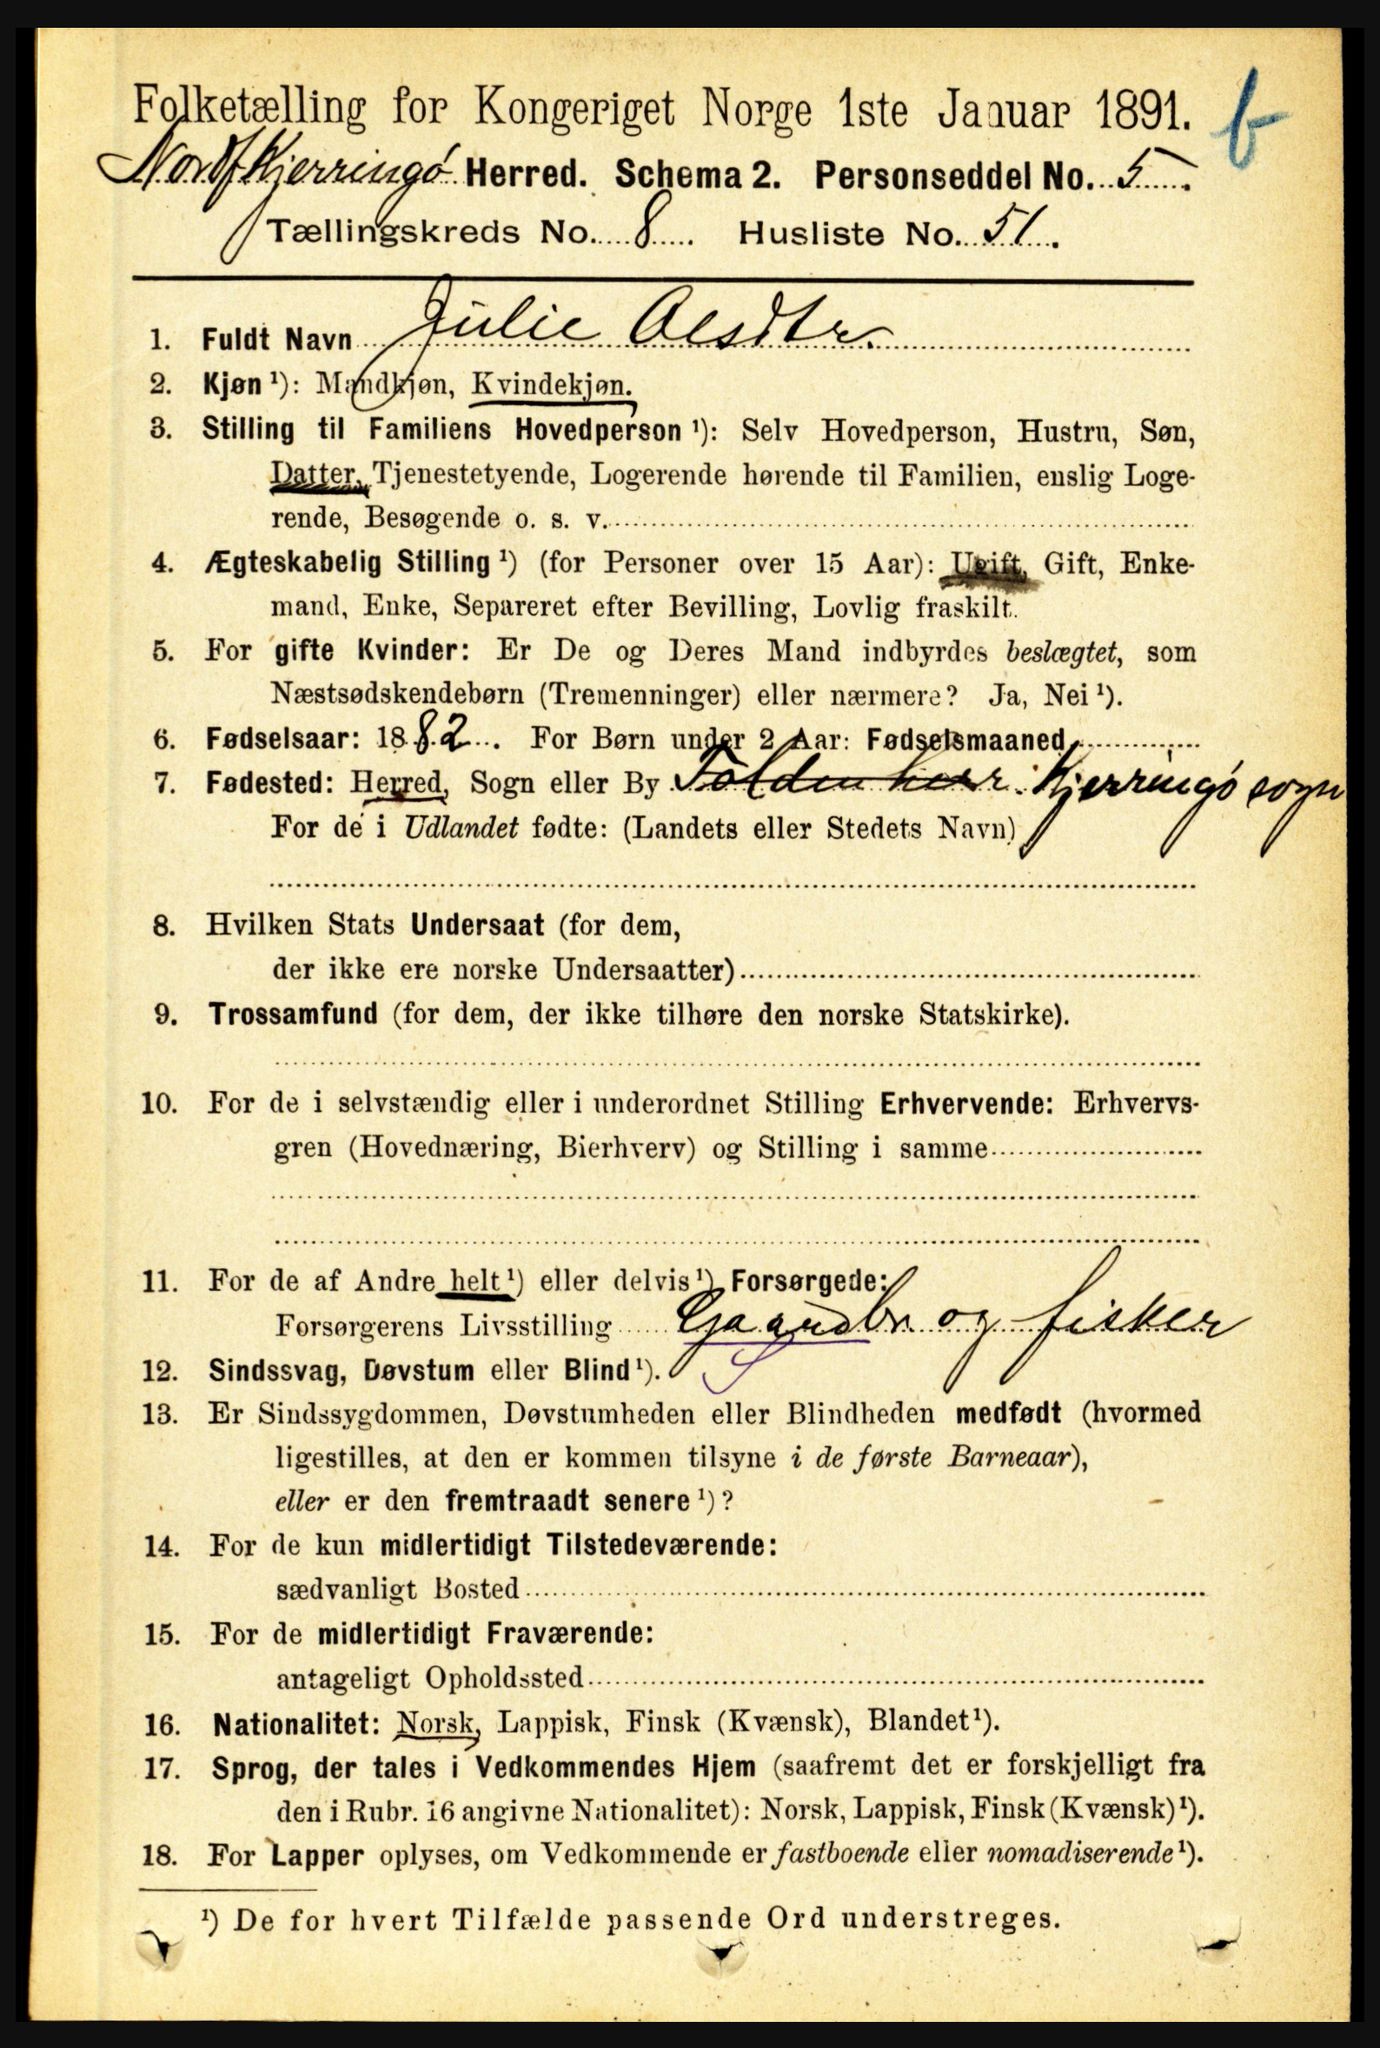 Folketælling for Kongeriget Norge 1ste Januar 1891.
b
Nordf Kjerringø Herred. Schema 2. Personseddel No. 5.
Tællingskreds No. 8. Husliste No. 51.
1. Fuldt Navn Julie Olsdtr.
2. Kjøn ¹): Mandkjøn, Kvindekjøn.
3. Stilling til Familiens Hovedperson ¹): Selv Hovedperson, Hustru, Søn,
Datter, Tjenestetyende, Logerende hørende til Familien, enslig Loge-
rende, Besøgende o. s. v.
4. Ægteskabelig Stilling ¹) (for Personer over 15 Aar): Ugift, Gift, Enke-
mand, Enke, Separeret efter Bevilling, Lovlig fraskilt.
5. For gifte Kvinder: Er De og Deres Mand indbyrdes beslægtet, som
Næstsødskendebørn (Tremenninger) eller nærmere? Ja, Nei ¹).
6. Fødselsaar: 1882. For Børn under 2 Aar: Fødselsmaaned
7. Fødested: Herred, Sogn eller By Folden herr. Kjerringø sogn
For de i Udlandet fødte: (Landets eller Stedets Navn)
8. Hvilken Stats Undersaat (for dem,
der ikke ere norske Undersaatter)
9. Trossamfund (for dem, der ikke tilhøre den norske Statskirke).
10. For de i selvstændig eller i underordnet Stilling Erhvervende: Erhvervs-
gren (Hovednæring, Bierhverv) og Stilling i samme
11. For de af Andre helt ¹) eller delvis ¹) Forsørgede:
Forsørgerens Livsstilling Gaardbr. og fisker
S
12. Sindssvag, Døvstum eller Blind ¹).
13. Er Sindssygdommen, Døvstumheden eller Blindheden medfødt (hvormed
ligestilles, at den er kommen tilsyne i de første Barneaar),
eller er den fremtraadt senere ¹)?
14. For de kun midlertidigt Tilstedeværende:
sædvanligt Bosted
15. For de midlertidigt Fraværende:
antageligt Opholdssted
16. Nationalitet: Norsk, Lappisk, Finsk (Kvænsk), Blandet ¹).
17. Sprog, der tales i Vedkommendes Hjem (saafremt det er forskjelligt fra
den i Rubr. 16 angivne Nationalitet): Norsk, Lappisk, Finsk (Kvænsk) ¹).
18. For Lapper oplyses, om Vedkommende er fastboende eller nomadiserende ¹).
¹) De for hvert Tilfælde passende Ord understreges.